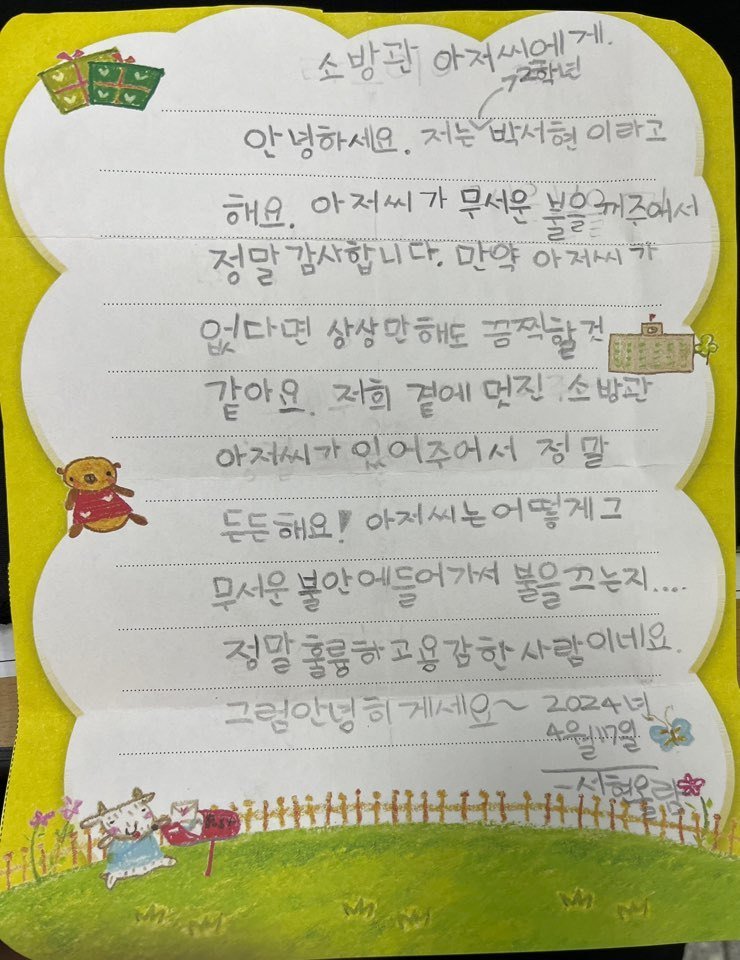 소방관 아저씨에게.
2학년
안녕하세요. 저는 박서현이라고
해요. 아저씨가 무서운 불을 꺼주에서
정말 감사합니다. 만약 아저씨가
없다면 상상만해도 끔찍할것
같아요. 저희 곁에 멋진 소방관
아저씨가 있어주어서 정말
든든해요! 아저씨는어떻게그
무서운 불안에들어가셔 불을끄는지....
정말훌륭하고용감한사람이네요.
그럼안녕히게세요~ 2024년
4월17일
-서현올림
Post